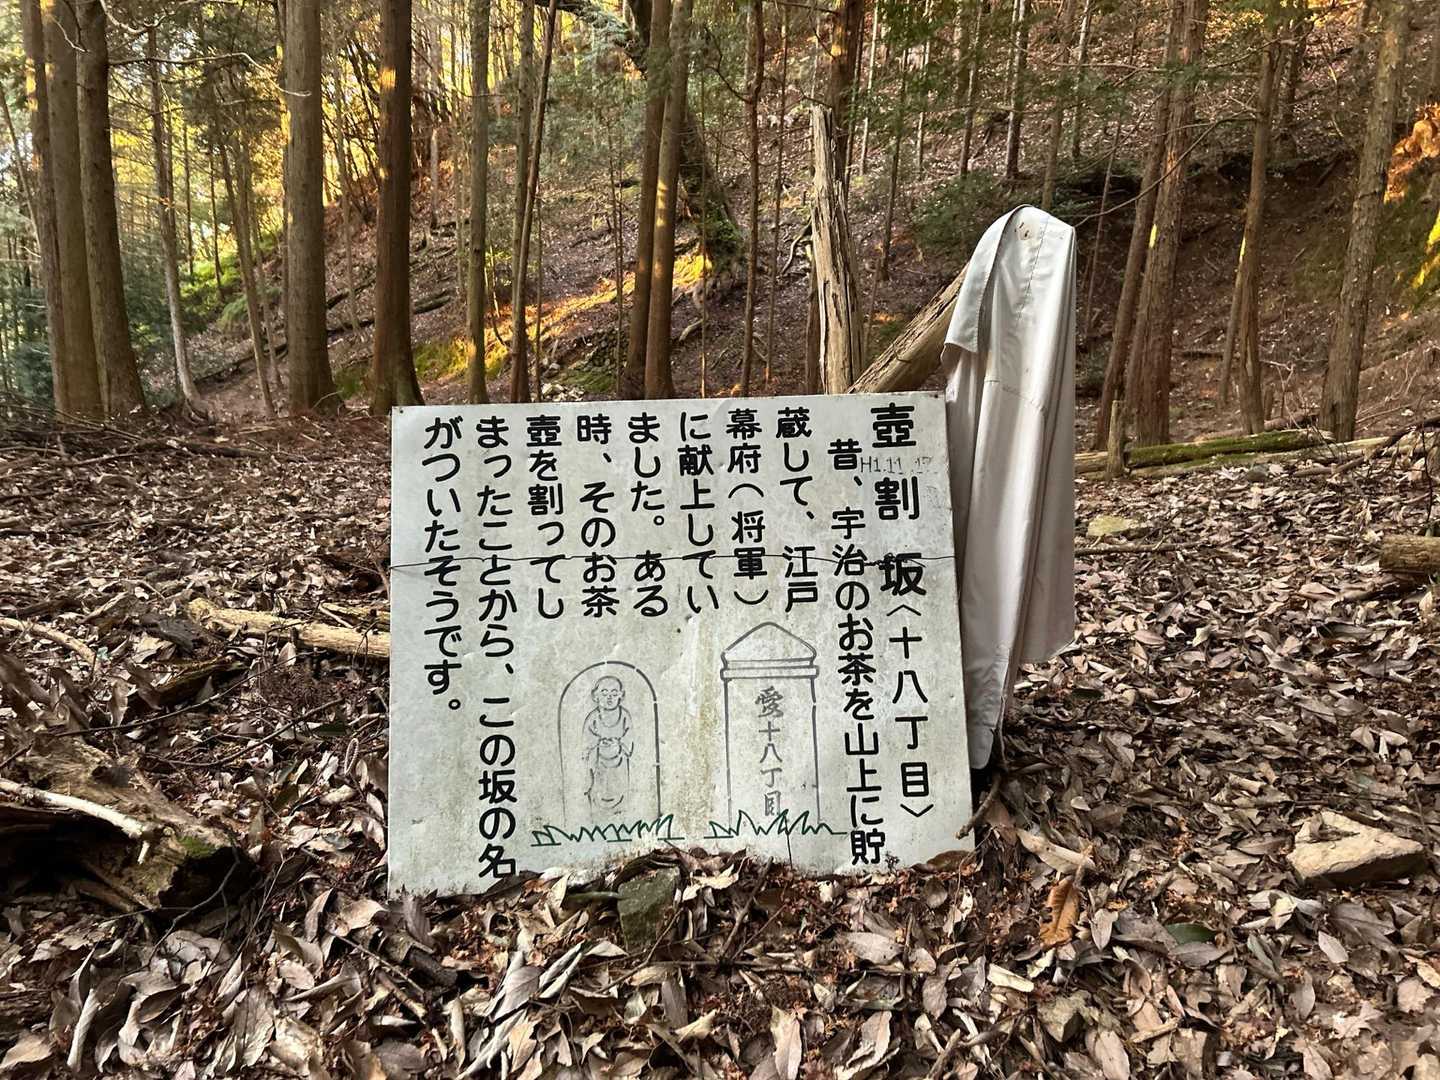 壺割坂〈十八丁目〉
H1.11.17
昔、宇治のお茶を山上に貯
蔵して、江戸
幕府(将軍)
に献上してい
ました。ある
時、そのお茶
壺を割ってし
まったことから、この坂の名
がついたそうです。
愛十八丁目